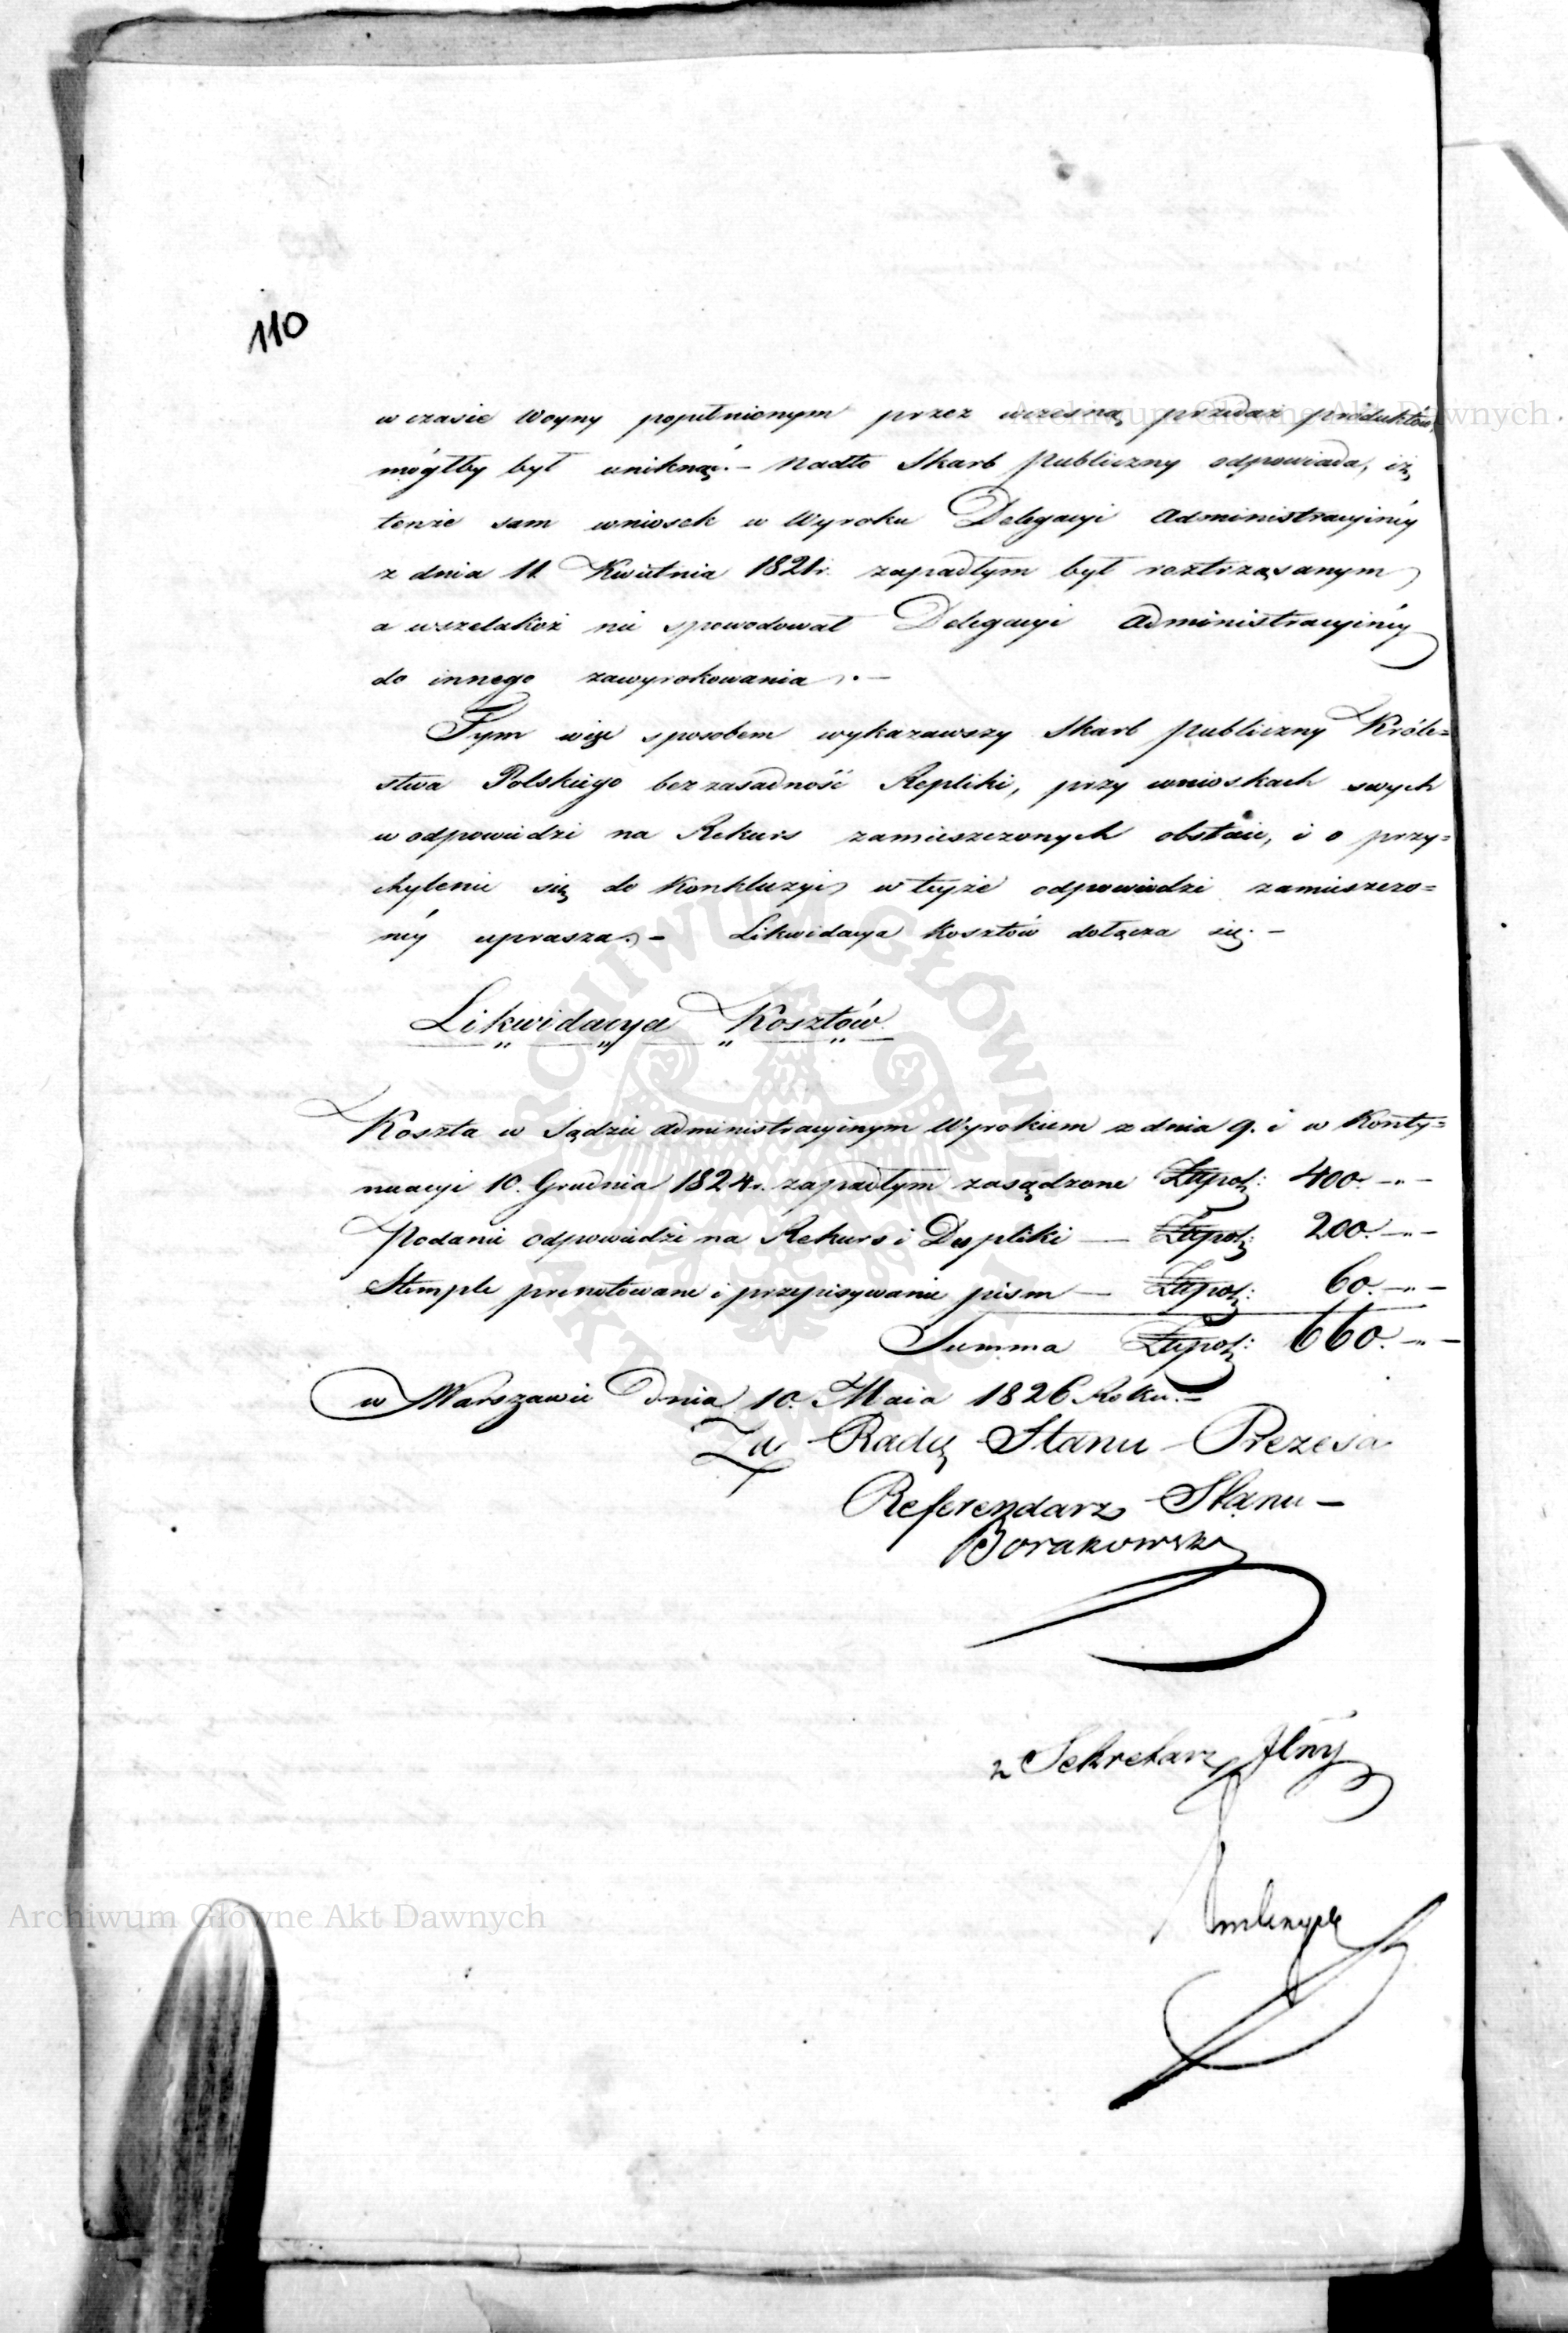 110
w czasie Woyny popełnionym przez wczesną przedaż produktów,
mógłby był uniknąć.- Nadto Skarb Publiczny odpowiada, iż
tenże sam wniosek w Wyroku Delegacyi Administracyinéy
z dnia 11 Kwietnia 1821r. zapadłym był roztrząsanym
a wszelakoż nie spowodował Delegacyi Administracyinéy
do innego zawyrokowania.-
Tym więc sposobem wykazawszy Skarb Publiczny Króle=
stwa Polskiego bezzasadność Repliki, przy wnioskach swych
w odpowiedzi na Rekurs zamieszczonych obstaie, i o przy=
chylenie się do Konkluzyi w teyże odpowiedzi zamieszczo=
néy uprasza.- Likwidacya Kosztów dołącza się.-
Likwidacya Kosztów
Koszta w Sądzie Administracyinym Wyrokiem z dnia 9. i w Konty=
nuacyi 10. Grudnia 1824r. zapadłym zasądzone Złłpol: 400.-"-
Podanie odpowiedzi na Rekurs i Dupliki — Złłpol: 200.-"-
Stemple prenotowane i przepisywanie pism — Złłpol: 60.-"-
Summa Złłpol: 660.-"-
w Warszawie Dnia 10. Maia 1826 Roku.-
Za Radcę Stanu Prezesa
Referendarz Stanu -
Borakowski
z Sekretarz Jlny
Archiwum Główne Akt Dawnych
Archiwum Główne Akt Dawnych
ARCHIWUM GŁÓWNE AKT DAWNYCH